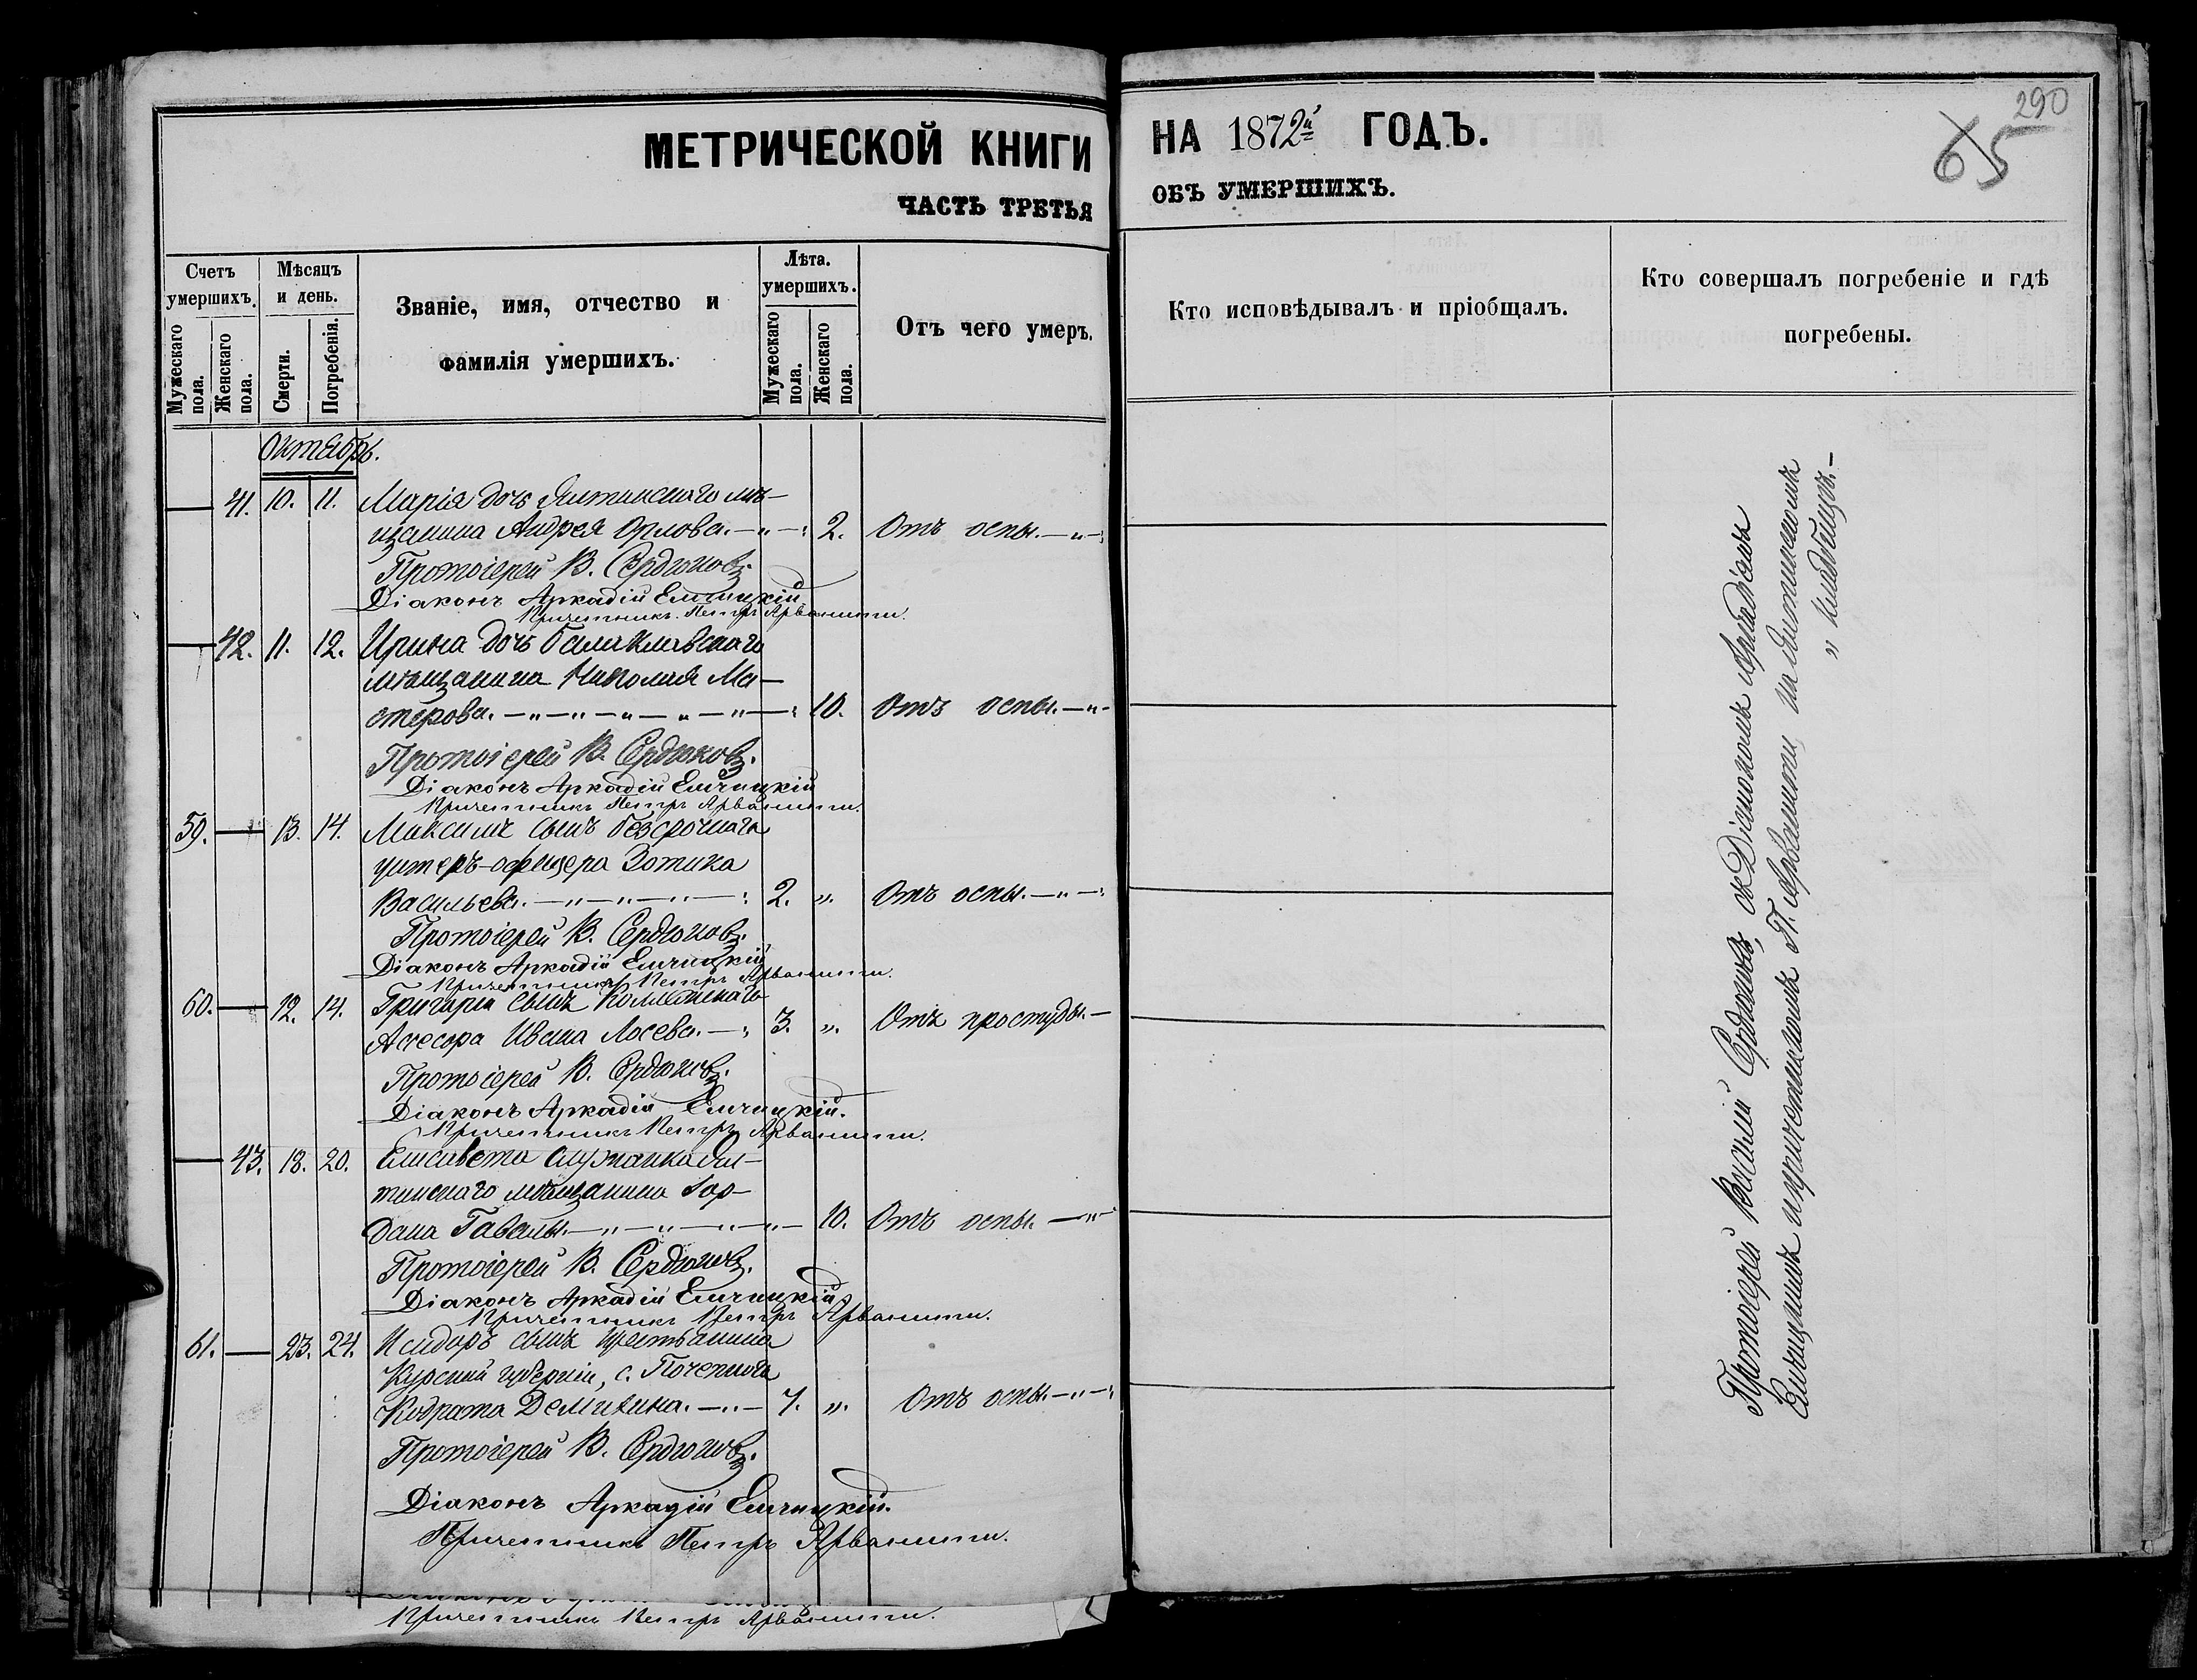 МЕТРИЧЕСКОЙ КНИГИ
ЧАСТЬ ТРЕТЬЯ
Счетъ умершихъ.
Мужескаго пола.
Женскаго пола.
Мѣсяцъ и день.
Смерти.
Погребенія.
Званіе, имя, отчество и
фамилія умершихъ.
Лѣта. умершихъ.
Мужескаго пола.
Женскаго пола.
Отъ чего умеръ.
Октябрь.
— 41. 10. 11. Марія дочь Ялтинскаго мѣ-
щанина Андрея Орлова. 2. Отъ оспы.
Протоіерей В. Сердюковъ.
Діаконъ Аркадій Елчицкій
Причетникъ Петръ Арванити.
— 42. 11. 12. Ирина дочь Балаклавскаго
мѣщанина Николая Ма-
стерова. 10. Отъ оспы.
Протоіерей В. Сердюковъ.
Діаконъ Аркадій Елчицкій
Причетникъ Петръ Арванити.
59. — 13. 14. Максимъ сынъ безсрочнаго
унтеръ-офицера Зотика
Васильева. 2. „ Отъ оспы.
Протоіерей В. Сердюковъ.
Діаконъ Аркадій Елчицкій
Причетникъ Петръ Арванити.
60. — 12. 14. Григорій сынъ Коллежскаго
Асесора Ивана Лосева. 3. „ Отъ простуды.
Протоіерей В. Сердюковъ.
Діаконъ Аркадій Елчицкій.
Причетникъ Петръ Арванити.
— 43. 18. 20. Елисавета служанка Ял-
тинскаго мѣщанина Іор-
дана Гавалы. 10. Отъ оспы.
Протоіерей В. Сердюковъ.
Діаконъ Аркадій Елчицкій
Причетникъ Петръ Арванити.
61. — 23. 24. Исидоръ сынъ крестьянина
Курской губерніи, с. Почепнаго
Кодрата Демихина. 7. „ Отъ оспы.
Протоіерей В. Сердюковъ.
Діаконъ Аркадій Елчицкій.
Причетникъ Петръ Арванити.
Причетникъ Петръ Арванити.
НА 1872й ГОДЪ.
ОБЪ УМЕРШИХЪ.
290
65
Кто исповѣдывалъ и пріобщалъ.
Кто совершалъ погребеніе и гдѣ
погребены.
Протоіерей Василій Сердюковъ, съ Діакономъ Аркадіемъ
Елчицкимъ и причетникомъ П. Арванити, на Ялтинскомъ
„ кладбищѣ.—